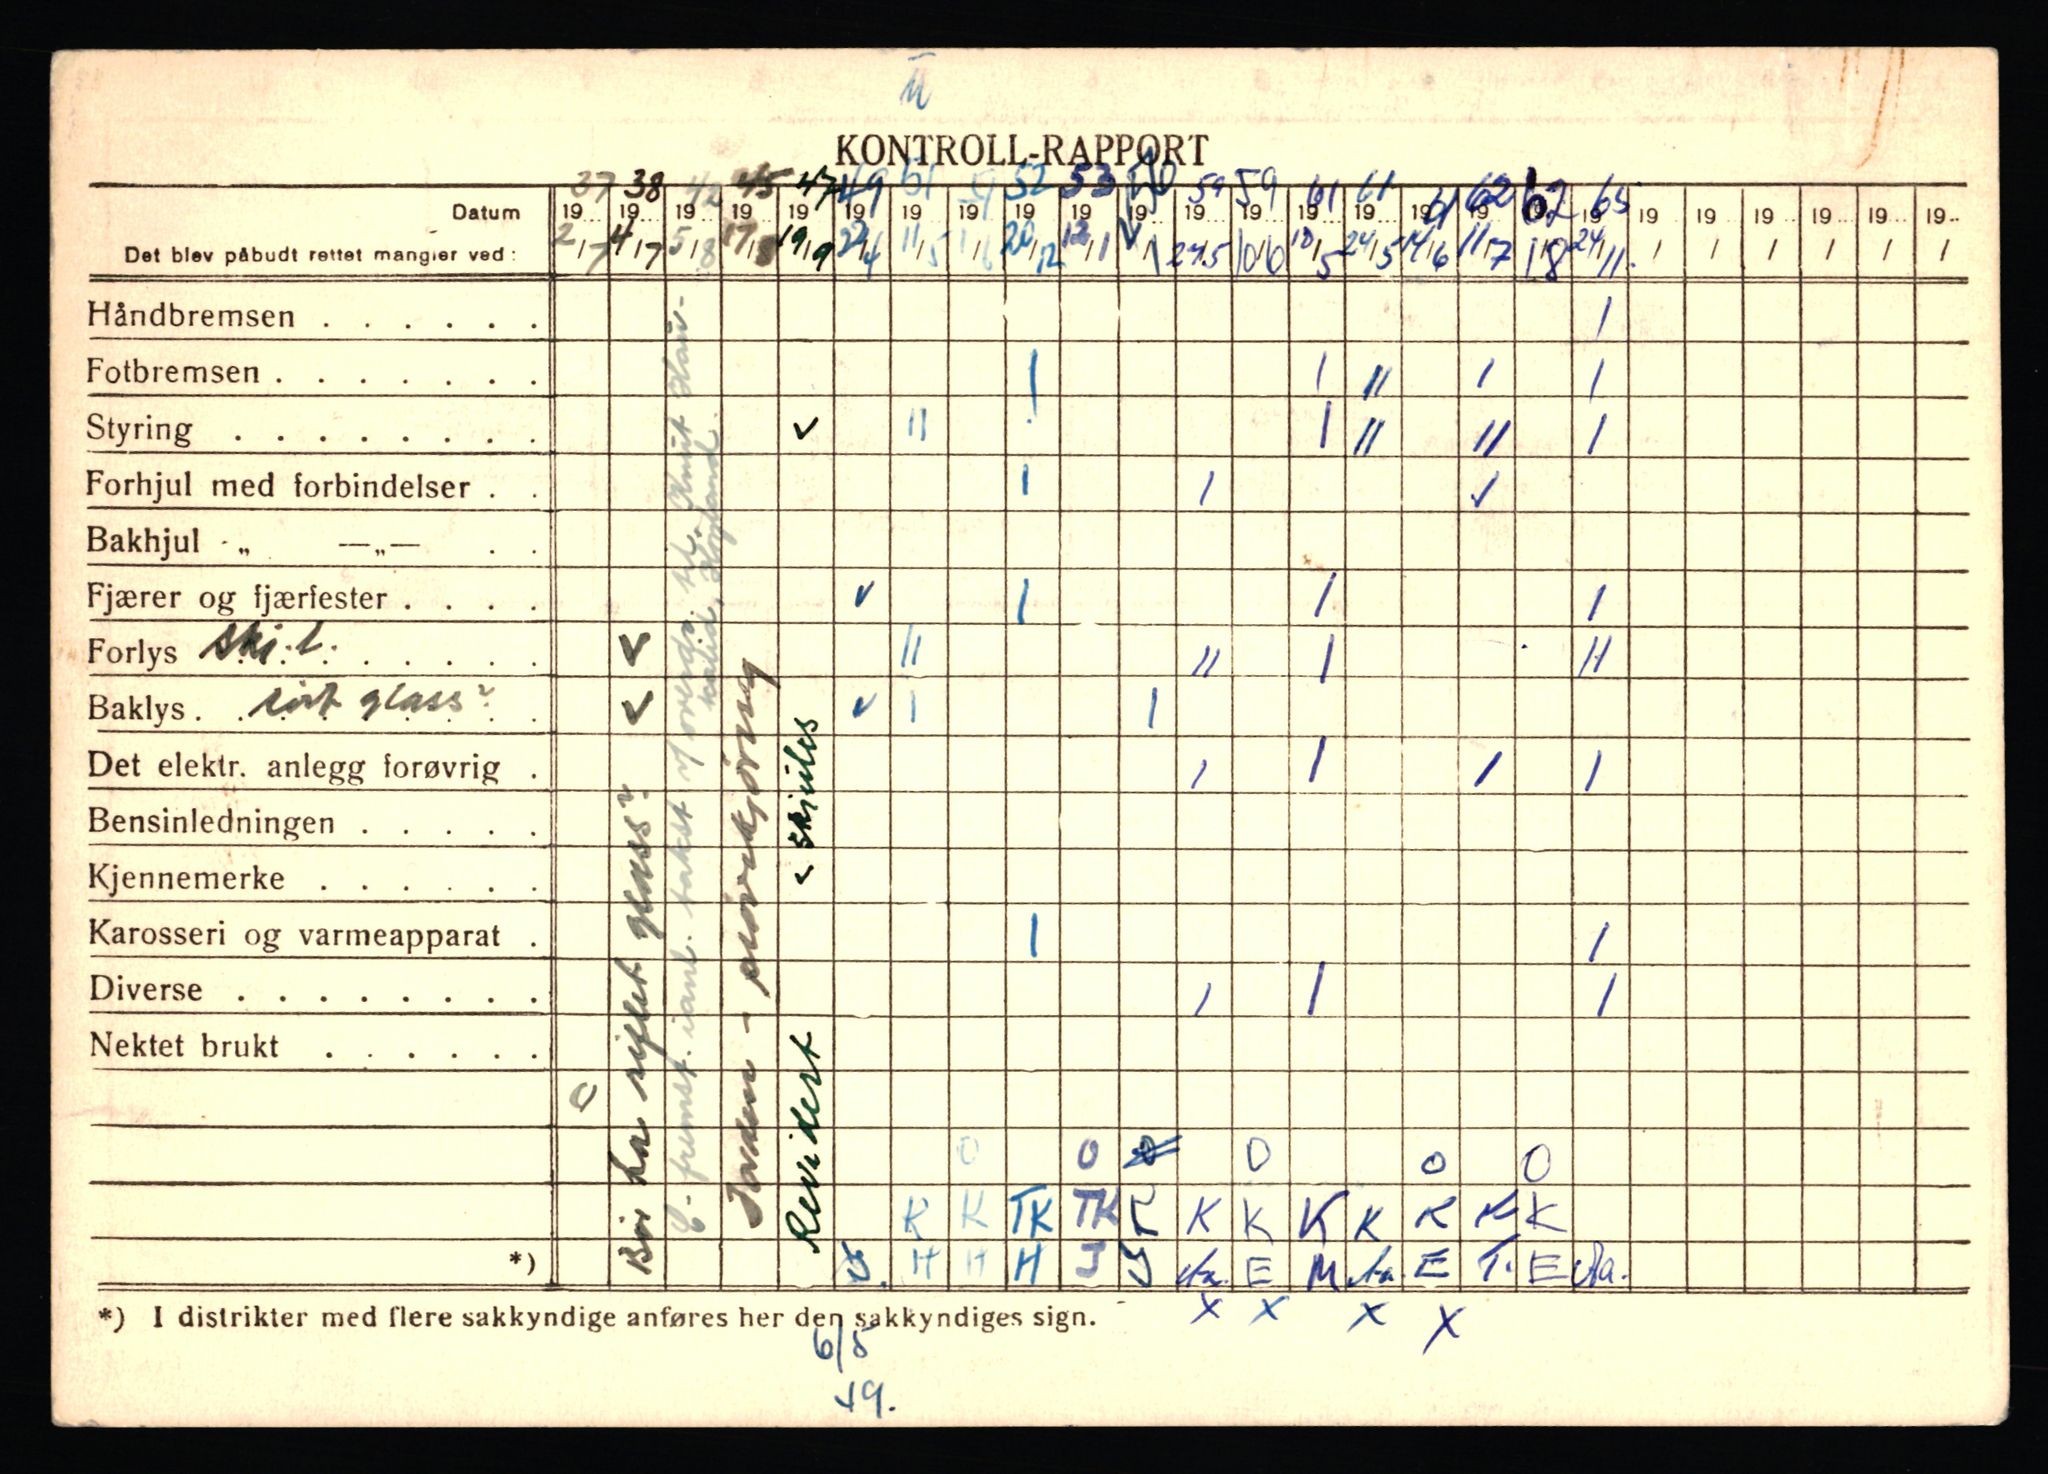 II
KONTROLL-RAPPORT
37 38 42 45 47 49 51 52 53 59 59 61 61 61 62 62 65
Datum 19 19 19 19 19 19 19 19 19 19 19 19 19 19 19 19 19 19 19 19 19 19 19 19
Det blev påbudt rettet mangler ved: 2/7 4/7 5/8 17/8 19/9 11/5 1/6 20/12 12/1 27/5 10/6 10/5 24/5 14/6 11/7 1/8 24/11 / / / / / /
Håndbremsen . . . . . . /
Fotbremsen . . . . . . . / / // / /
Styring . . . . . . . . ✓ // / // // /
Forhjul med forbindelser . . / / ✓
Bakhjul „ —„— . .
Fjærer og fjærfester . . . . ✓ / / /
Forlys ski.l. ✓ // // / //
Baklys . rist glass? ✓ ✓ / /
Det elektr. anlegg forøvrig . / / / /
Bensinledningen . . . . .
Kjennemerke . . . . . ✓ skiules
Karosseri og varmeapparat . / /
Diverse . . . . . . . . / / /
Nektet brukt . . . . . .
0
Bør ha riflet glass?
fremst. ianl. takst v/overdr. til Knut
Revidert
0 0 0 0 0 0
K K TK TK K K K K K K K K
*) H H H J E M E T. E
*) I distrikter med flere sakkyndige anføres her den sakkyndiges sign.
x x x x
6/5
49.